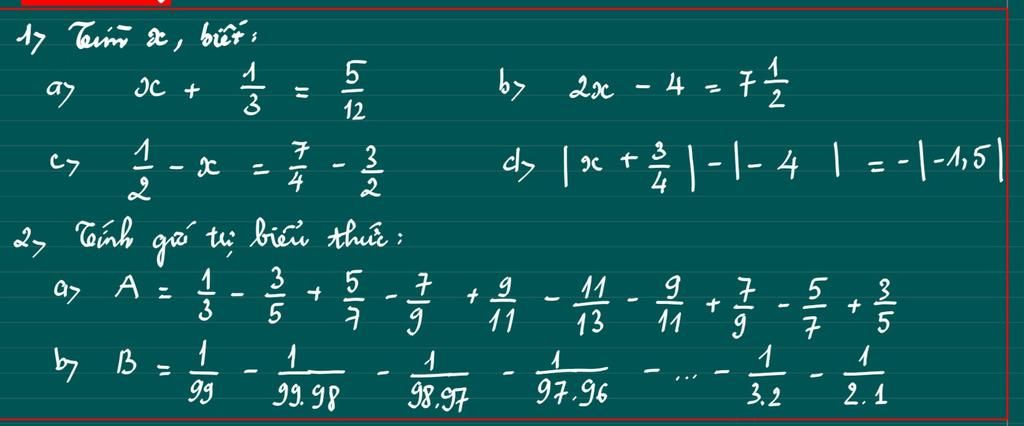 1> Tìm x, biết:
a> x + 1/3 = 5/12 b> 2x - 4 = 7 1/2
c> 1/2 - x = 7/4 - 3/2 d> |x + 3/4| - |-4| = -|-1,5|
2> Tính giá trị biểu thức:
a> A = 1/3 - 3/5 + 5/7 - 7/9 + 9/11 - 11/13 - 9/11 + 7/9 - 5/7 + 3/5
b> B = 1/99 - 1/99.98 - 1/98.97 - 1/97.96 - ... - 1/3.2 - 1/2.1